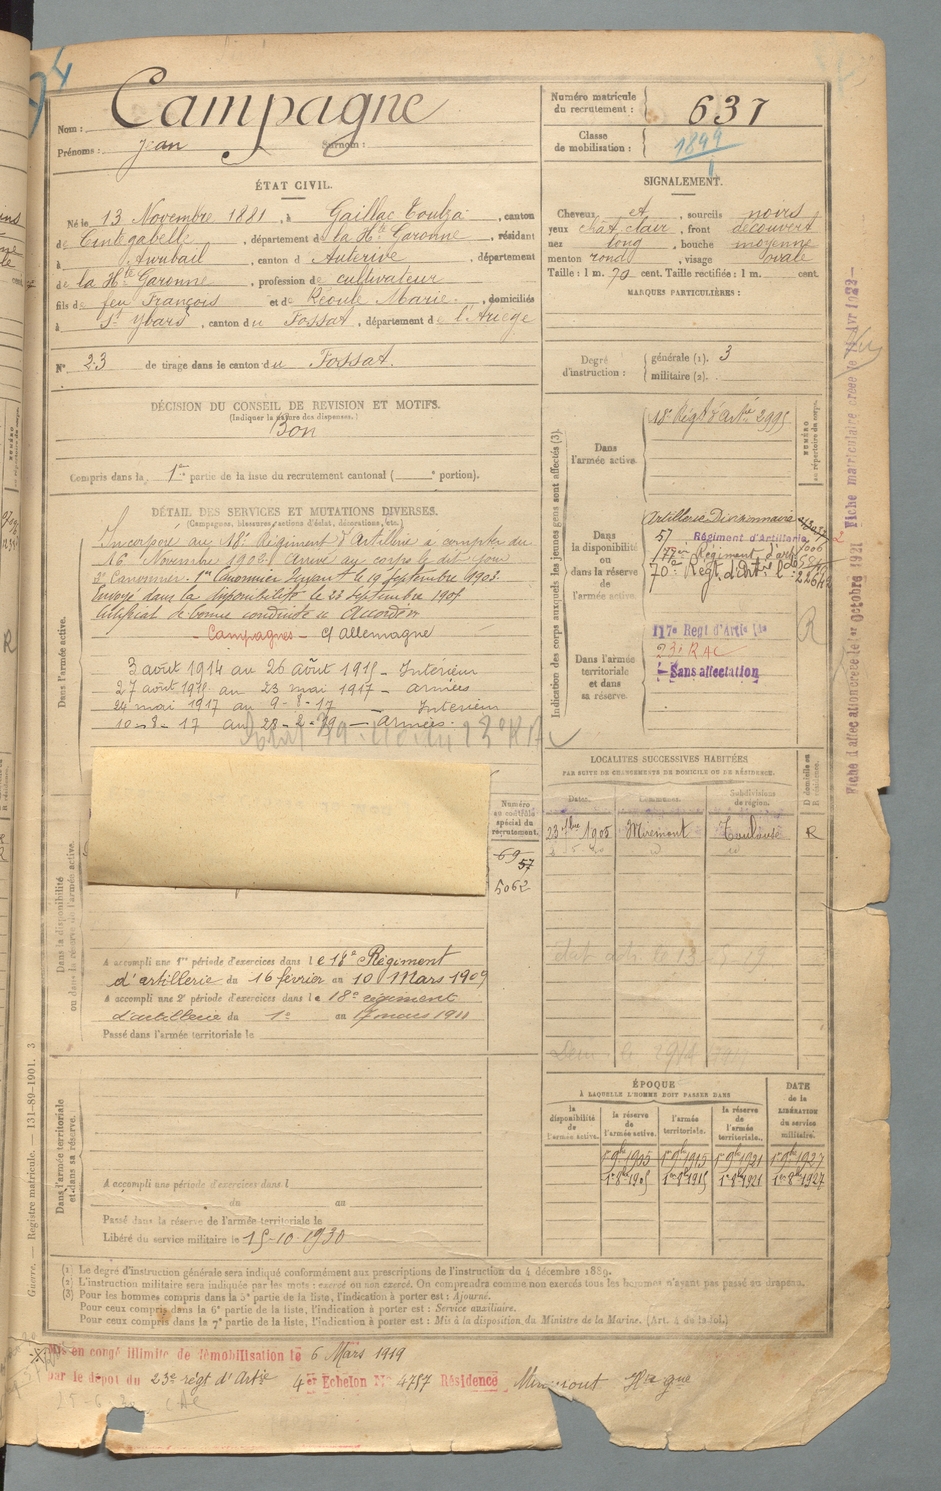 Campagne
Nom :
Prénoms : Jean Surnom :
Numéro matricule du recrutement : 637
Classe de mobilisation : 1899
ÉTAT CIVIL.
Né le 13 Novembre 1881, à Gaillac Toulza, canton
de Cintegabelle, département de la Hte Garonne, résidant
à Auribail, canton d Auterive, département
de la Hte Garonne, profession de cultivateur
fils de feu François et de Récoule Marie, domiciliés
à St Ybars, canton du Fossat, département de l'Ariège
N° 23 de tirage dans le canton du Fossat.
SIGNALEMENT.
Cheveux et, sourcils noirs
yeux chat. clair, front découvert
nez long, bouche moyenne
menton rond, visage ovale
Taille : 1 m. 70 cent. Taille rectifiée : 1 m. cent.
MARQUES PARTICULIÈRES :
Degré d'instruction : générale (1). 3
militaire (2).
DÉCISION DU CONSEIL DE REVISION ET MOTIFS.
(Indiquer la nature des dispenses.)
Bon
Compris dans la 1re partie de la liste du recrutement cantonal ( e portion).
DÉTAIL DES SERVICES ET MUTATIONS DIVERSES.
(Campagnes, blessures, actions d'éclat, décorations, etc.)
Dans l'armée active.
Incorporé au 18e Régiment d'Artillerie à compter du
16 Novembre 1902. Arrivé au corps le dit jour
2e Canonnier. 1er Canonnier Servant le 19 Septembre 1903.
Envoyé dans la disponibilité le 23 Septembre 1905
Certificat de bonne conduite « Accordé »
Campagnes - c/ Allemagne
3 août 1914 au 26 août 1915 - Intérieur
27 août 1915 au 23 mai 1917 - armées
24 mai 1917 au 9-8-17 - Intérieur
10-8-17 au 28-2-19 - Armées.
Indication des corps auxquels les jeunes gens sont affectés (3).
NUMÉRO au répertoire du corps.
Dans l'armée active.
18e Régt d'Artie 2995
Dans la disponibilité ou dans la réserve de l'armée active.
Artillerie Divisionnaire
57 Régiment d'Artillerie
Régiment d'art
70e Régt d'Art
Dans l'armée territoriale et dans sa réserve.
117e Regt d'Artie
23e RAC
Sans affectation
R
Fiche d'affectation créée le 1er octobre 1921 Fiche matriculaire créée le Avr 1922
LOCALITÉS SUCCESSIVES HABITÉES
PAR SUITE DE CHANGEMENTS DE DOMICILE OU DE RÉSIDENCE.
Dates. Communes. Subdivisions de région. D domicile ou R résidence.
23 7bre 1905 Miremont Toulouse R
Numéro au contrôle spécial du recrutement.
69
57
5062
Dans la disponibilité ou dans la réserve de l'armée active.
A accompli une 1re période d'exercices dans le 18e Régiment
d'artillerie du 16 février au 10 Mars 1909
A accompli une 2e période d'exercices dans le 18e régiment
d'artillerie du 1er au 17 mars 1911
Passé dans l'armée territoriale le
ÉPOQUE
À LAQUELLE L'HOMME DOIT PASSER DANS
la disponibilité de l'armée active. la réserve de l'armée active. l'armée territoriale. la réserve de l'armée territoriale.
DATE de la LIBÉRATION du service militaire.
1er 9bre 1905 1er 9bre 1915 1er 9bre 1921 1er 9bre 1927
1er 8bre 1905 1er 8bre 1915 1er 8bre 1921 1er 8bre 1927
Dans l'armée territoriale et dans sa réserve.
A accompli une période d'exercices dans l
du au
Passé dans la réserve de l'armée territoriale le
Libéré du service militaire le 15-10-1930
Guerre. — Registre matricule. — 131-89-1901. 3
(1) Le degré d'instruction générale sera indiqué conformément aux prescriptions de l'instruction du 4 décembre 1889.
(2) L'instruction militaire sera indiquée par les mots : exercé ou non exercé. On comprendra comme non exercés tous les hommes n'ayant pas passé au drapeau.
(3) Pour les hommes compris dans la 5e partie de la liste, l'indication à porter est : Ajourné.
Pour ceux compris dans la 6e partie de la liste, l'indication à porter est : Service auxiliaire.
Pour ceux compris dans la 7e partie de la liste, l'indication à porter est : Mis à la disposition du Ministre de la Marine. (Art. 4 de la loi.)
Mis en congé illimité de démobilisation le 6 Mars 1919
par le dépôt du 23e régt d'Artie 4er Echelon N° 4757 Résidence Miremont Hte Gne